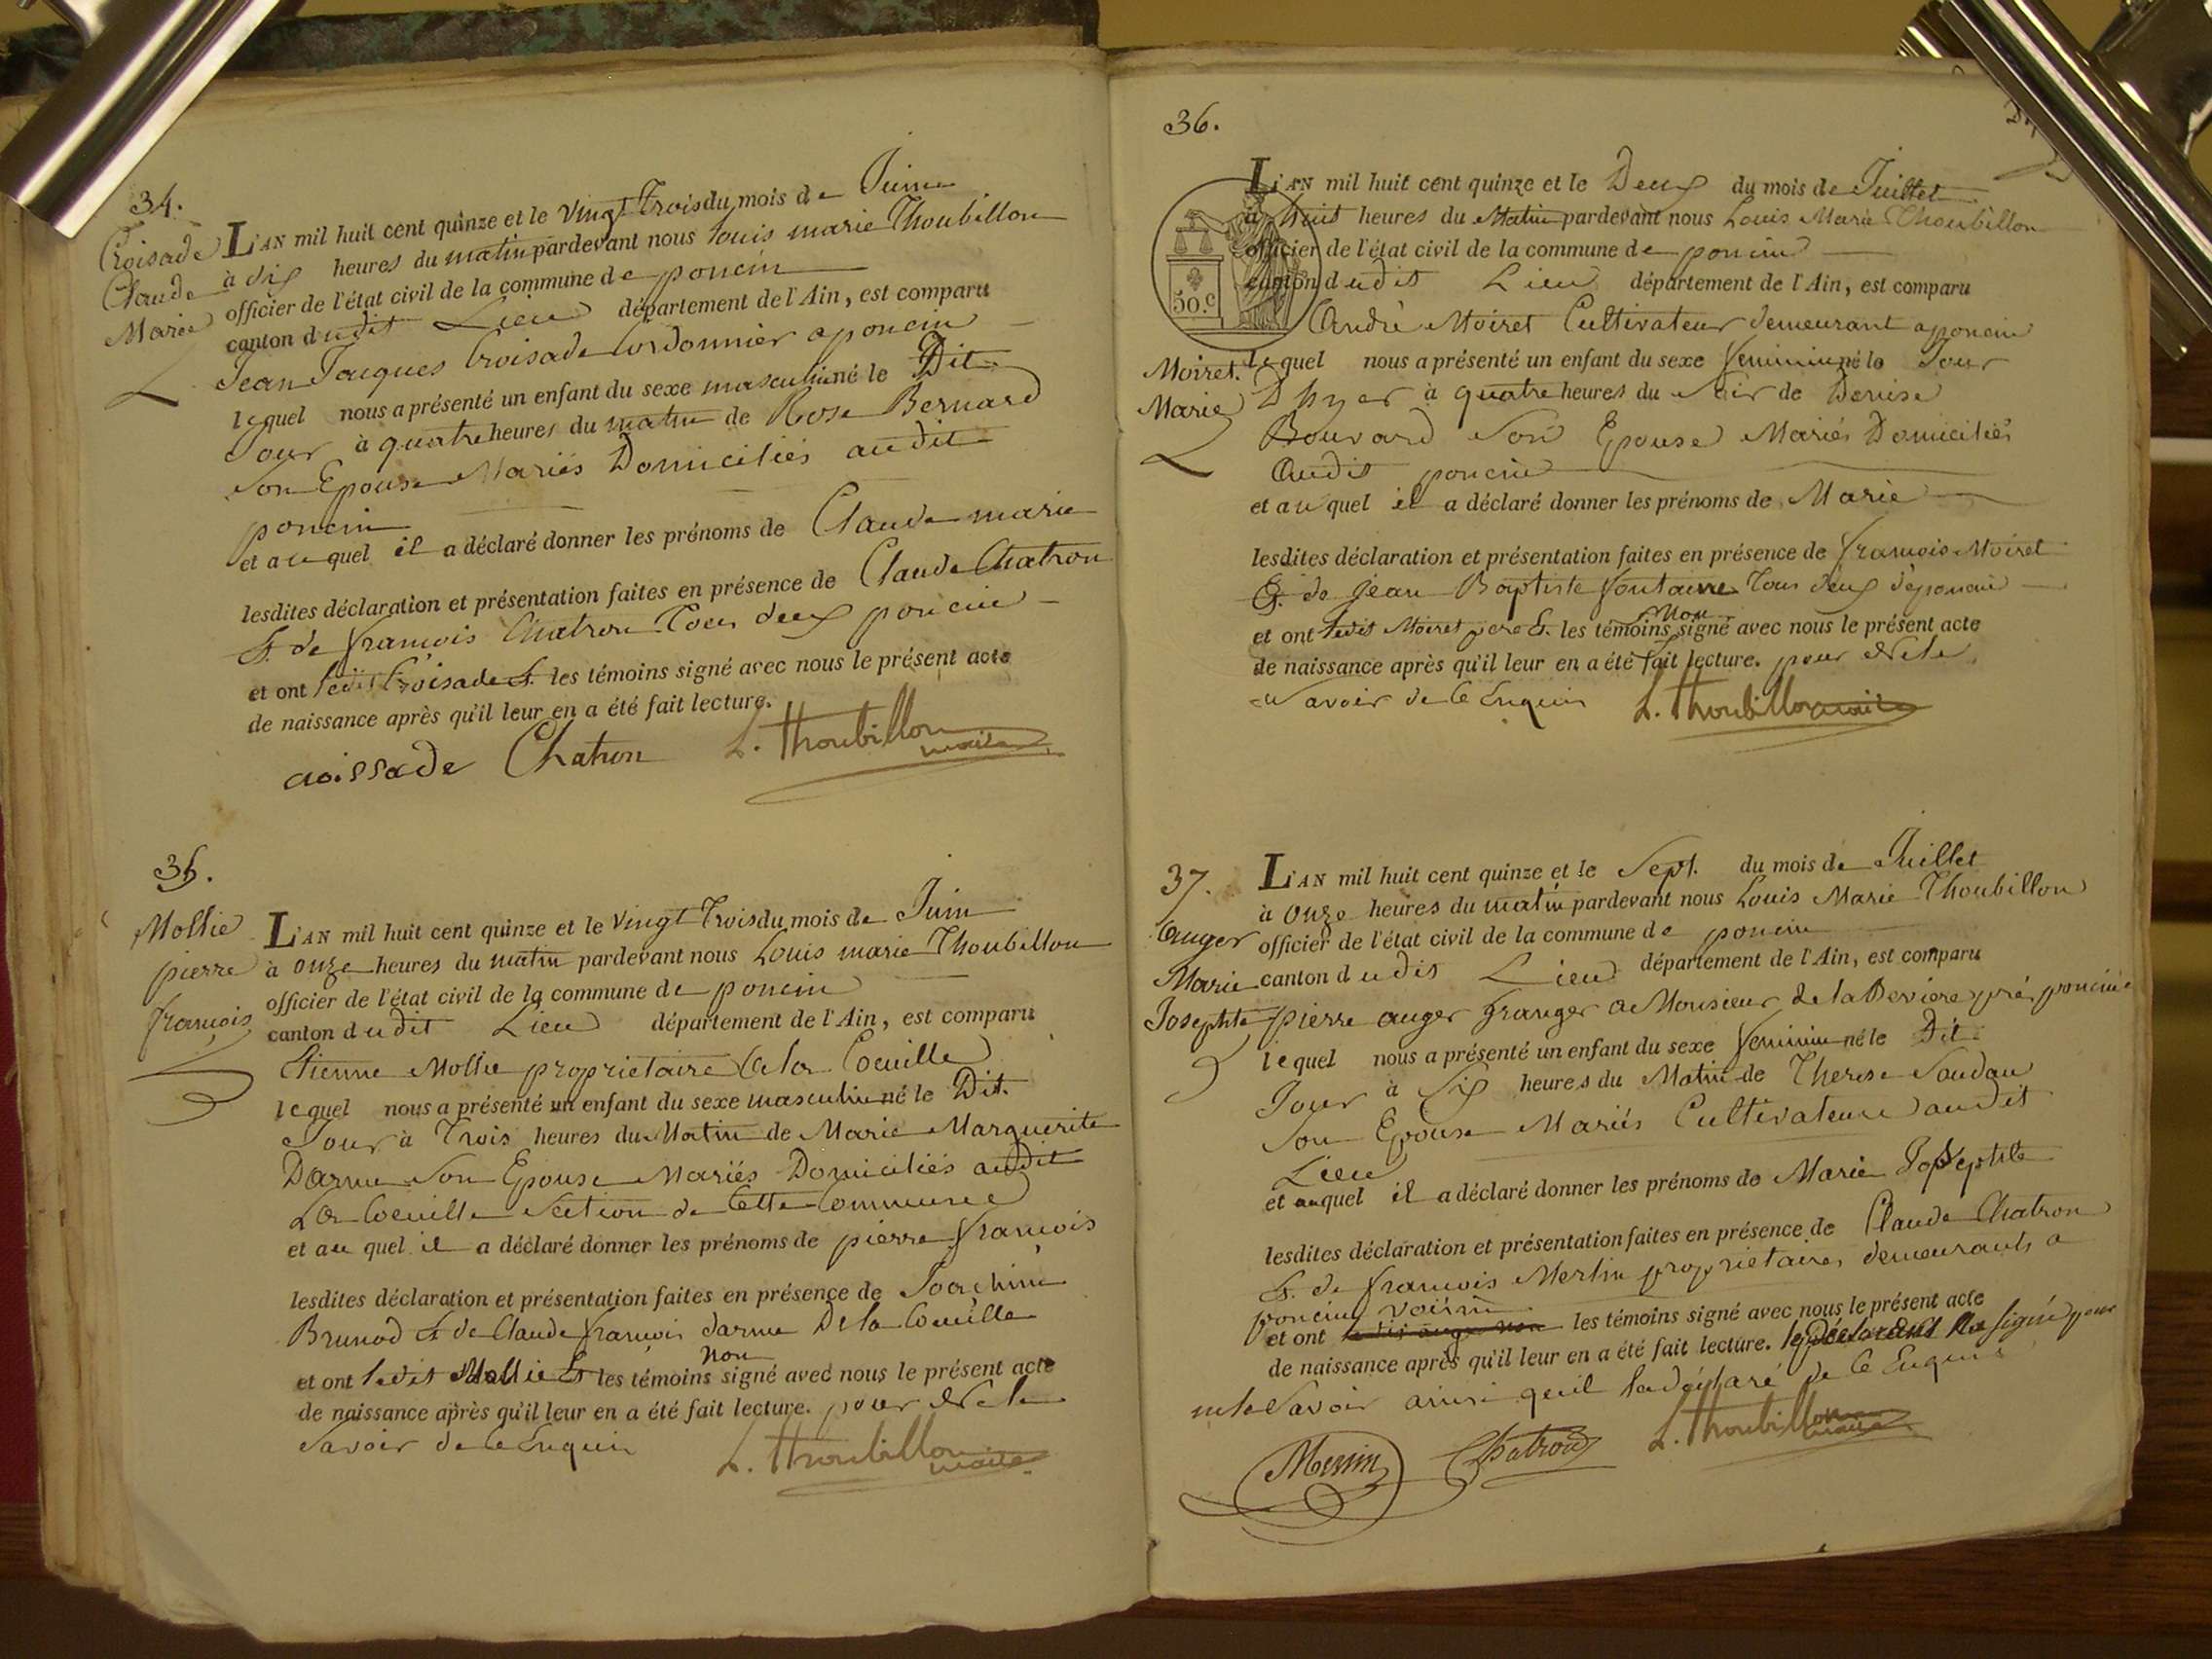 34.
Croisade
Claude
Marie
L'AN mil huit cent quinze et le vingt Trois du mois de Juin
à dix heures du matin pardevant nous Louis marie Thoubillon
officier de l'état civil de la commune de poncin
canton dudit Lieu département de l'Ain, est comparu
Jean Jacques Croisade Cordonnier a poncin
lequel nous a présenté un enfant du sexe masculin né le Dit
Jour à quatre heures du matin de Rose Bernard
Son Epouse Mariés Domiciliés audit
poncin
et auquel il a déclaré donner les prénoms de Claude marie
lesdites déclaration et présentation faites en présence de Claude Chatron
Et. de françois Chatron Tous deux poncin
et ont ledit Croisade Et. les témoins signé avec nous le présent acte
de naissance après qu'il leur en a été fait lecture.
croissade Chatron L. Thoubillon
maire
35.
Mollie
pierre
françois
L'AN mil huit cent quinze et le vingt Trois du mois de Juin
à onze heures du matin pardevant nous Louis marie Thoubillon
officier de l'état civil de la commune de poncin
canton dudit Lieu département de l'Ain, est comparu
Etienne Mollie propriétaire a la Coeuille
lequel nous a présenté un enfant du sexe masculin né le Dit.
Jour à Trois heures du Matin de Marie Marguerite
Darme Son Epouse Mariés Domiciliés audit
La Coeuille Section de Cette Commune
et auquel il a déclaré donner les prénoms de pierre françois
lesdites déclaration et présentation faites en présence de Joachim
Brunod Et de Claude françois darme De la Coeuille
et ont ledit Mollie Et les témoins non signé avec nous le présent acte
de naissance après qu'il leur en a été fait lecture. pour Ne le
Savoir de Ce Enquis L. Thoubillon
maire
36.
50.c
Moiret.
Marie
L'AN mil huit cent quinze et le Deux du mois de Juillet
à huit heures du Matin pardevant nous Louis Marie Thoubillon
officier de l'état civil de la commune de poncin
canton dudit Lieu département de l'Ain, est comparu
André Moiret Cultivateur demeurant a poncin
lequel nous a présenté un enfant du sexe feminin né le Jour
D hyer à quatre heures du Soir de Denise
Bouvard Son Epouse Mariés Domiciliés
Audit poncin
et auquel il a déclaré donner les prénoms de Marie
lesdites déclaration et présentation faites en présence de françois Moiret
Et. de Jean Baptiste fontaine Tous deux de poncin
et ont ledit Moiret pere Et. les témoins Non signé avec nous le présent acte
de naissance après qu'il leur en a été fait lecture. pour Ne le
Savoir de Ce Enquis L. Thoubillon maire
37.
Auger
Marie
Josephte
L'AN mil huit cent quinze et le Sept. du mois de Juillet
à onze heures du matin pardevant nous Louis Marie Thoubillon
officier de l'état civil de la commune de poncin
canton dudit Lieu département de l'Ain, est comparu
pierre auger Granger a Monsieur De la poncin
lequel nous a présenté un enfant du sexe feminin né le Dit
Jour à Six heures du Matin de Therese Soudan
Son Epouse Mariés Cultivateurs audit
Lieu
et auquel il a déclaré donner les prénoms de Marie Josephte
lesdites déclaration et présentation faites en présence de Claude Chatron
Et. de françois Merlin propriétaires demeurants a
poncin voisin
et ont les témoins signé avec nous le présent acte
de naissance après qu'il leur en a été fait lecture. le Déclarant Na Signé pour
ne le Savoir ainsi quil la déclaré de Ce Enquis
Chatron L. Thoubillon
maire